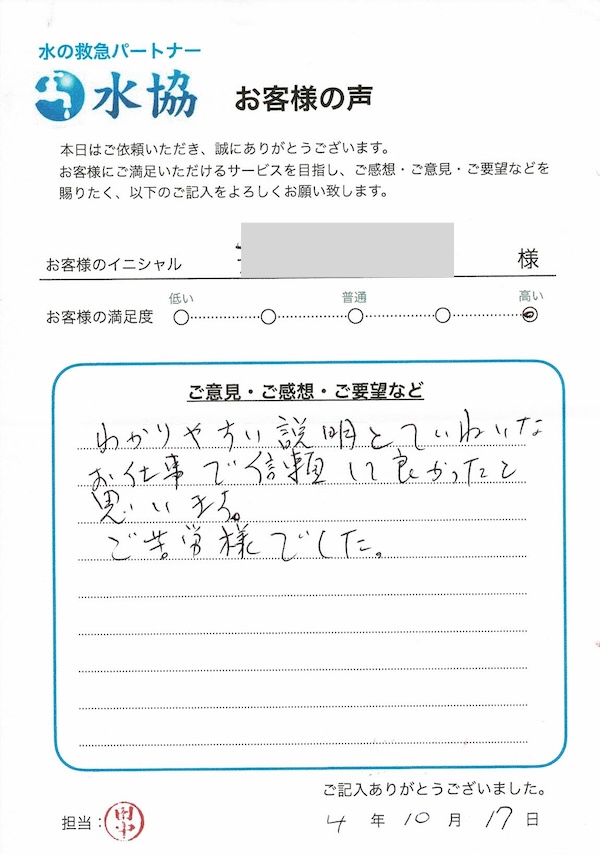 水の救急パートナー
水協 お客様の声
本日はご依頼いただき、誠にありがとうございます。
お客様にご満足いただけるサービスを目指し、ご感想・ご意見・ご要望などを
賜りたく、以下のご記入をよろしくお願い致します。
お客様のイニシャル 様
低い 普通 高い
お客様の満足度
ご意見・ご感想・ご要望など
わかりやすい説明とていねいな
お仕事で信頼して良かったと
思います。
ご苦労様でした。
ご記入ありがとうございました。
担当: 田中 4年10月17日